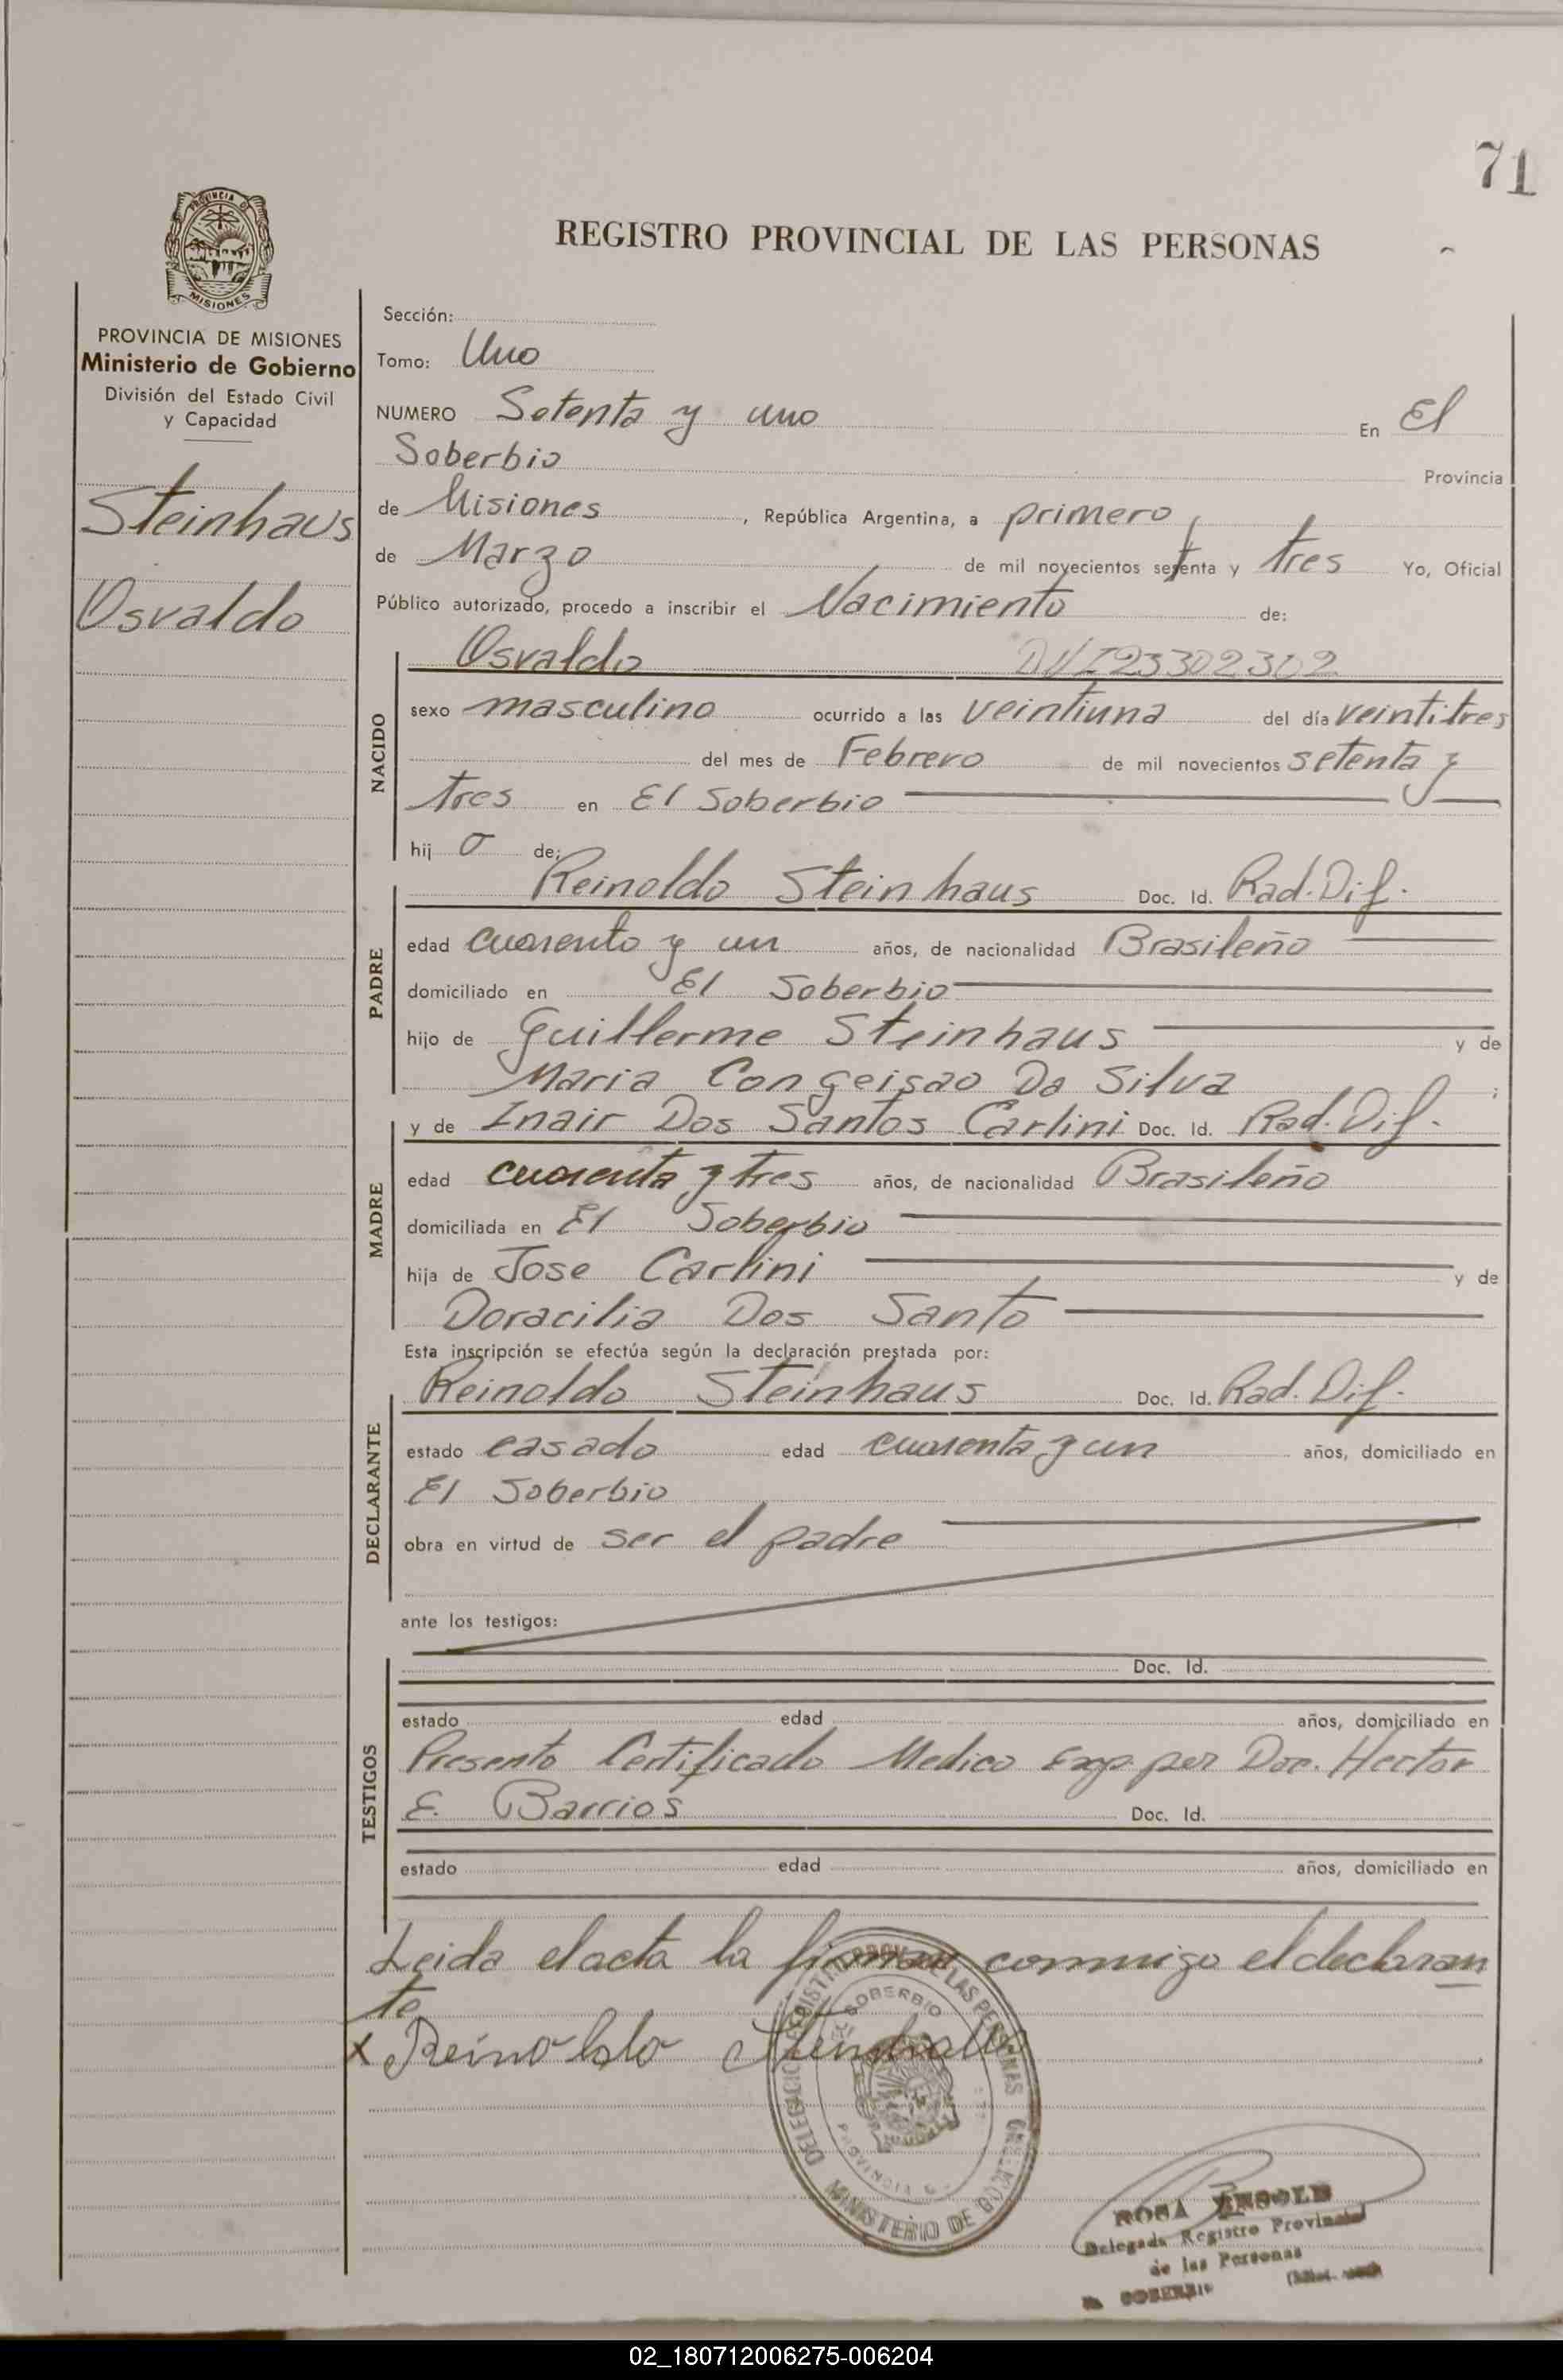 71
REGISTRO PROVINCIAL DE LAS PERSONAS
PROVINCIA DE
MISIONES
PROVINCIA DE MISIONES
Ministerio de Gobierno
División del Estado Civil
y Capacidad
Steinhaus
Osvaldo
Sección:
Tomo: Uno
NUMERO Setenta y uno En El
Soberbio Provincia
de Misiones, República Argentina, a primero
de Marzo de mil novecientos setenta y tres Yo, Oficial
Público autorizado, procedo a inscribir el Nacimiento de:
NACIDO
Osvaldo DNI 23302302
sexo masculino ocurrido a las veintiuna del día veintitres
del mes de Febrero de mil novecientos setenta y
tres en El Soberbio
hij o de:
PADRE
Reinoldo Steinhaus Doc. Id. Rad. Dif.
edad cuarenta y un años, de nacionalidad Brasileño
domiciliado en El Soberbio
hijo de Guillerme Steinhaus y de
Maria Congeisao Da Silva ;
MADRE
y de Inair Dos Santos Carlini Doc. Id. Rad. Dif.
edad cuarenta y tres años, de nacionalidad Brasileño
domiciliada en El Soberbio
hija de Jose Carlini y de
Doracilia Dos Santo
Esta inscripción se efectúa según la declaración prestada por:
DECLARANTE
Reinoldo Steinhaus Doc. Id. Rad. Dif.
estado casado edad cuarenta y un años, domiciliado en
El Soberbio
obra en virtud de ser el padre
ante los testigos:
TESTIGOS
Doc. Id.
estado edad años, domiciliado en
Presento Certificado Medico Exp. por Doc. Hector
E. Barrios Doc. Id.
estado edad años, domiciliado en
Leida el acta la firman conmigo el declaran
te
x Reinoldo
DELEGACION REGISTRO PROV. DE LAS PERSONAS
EL SOBERBIO
PROVINCIA
MINISTERIO DE GOBIERNO
ROSA
Delegada Registro Provincial
de las Personas
SOBERBIO
02_180712006275-006204